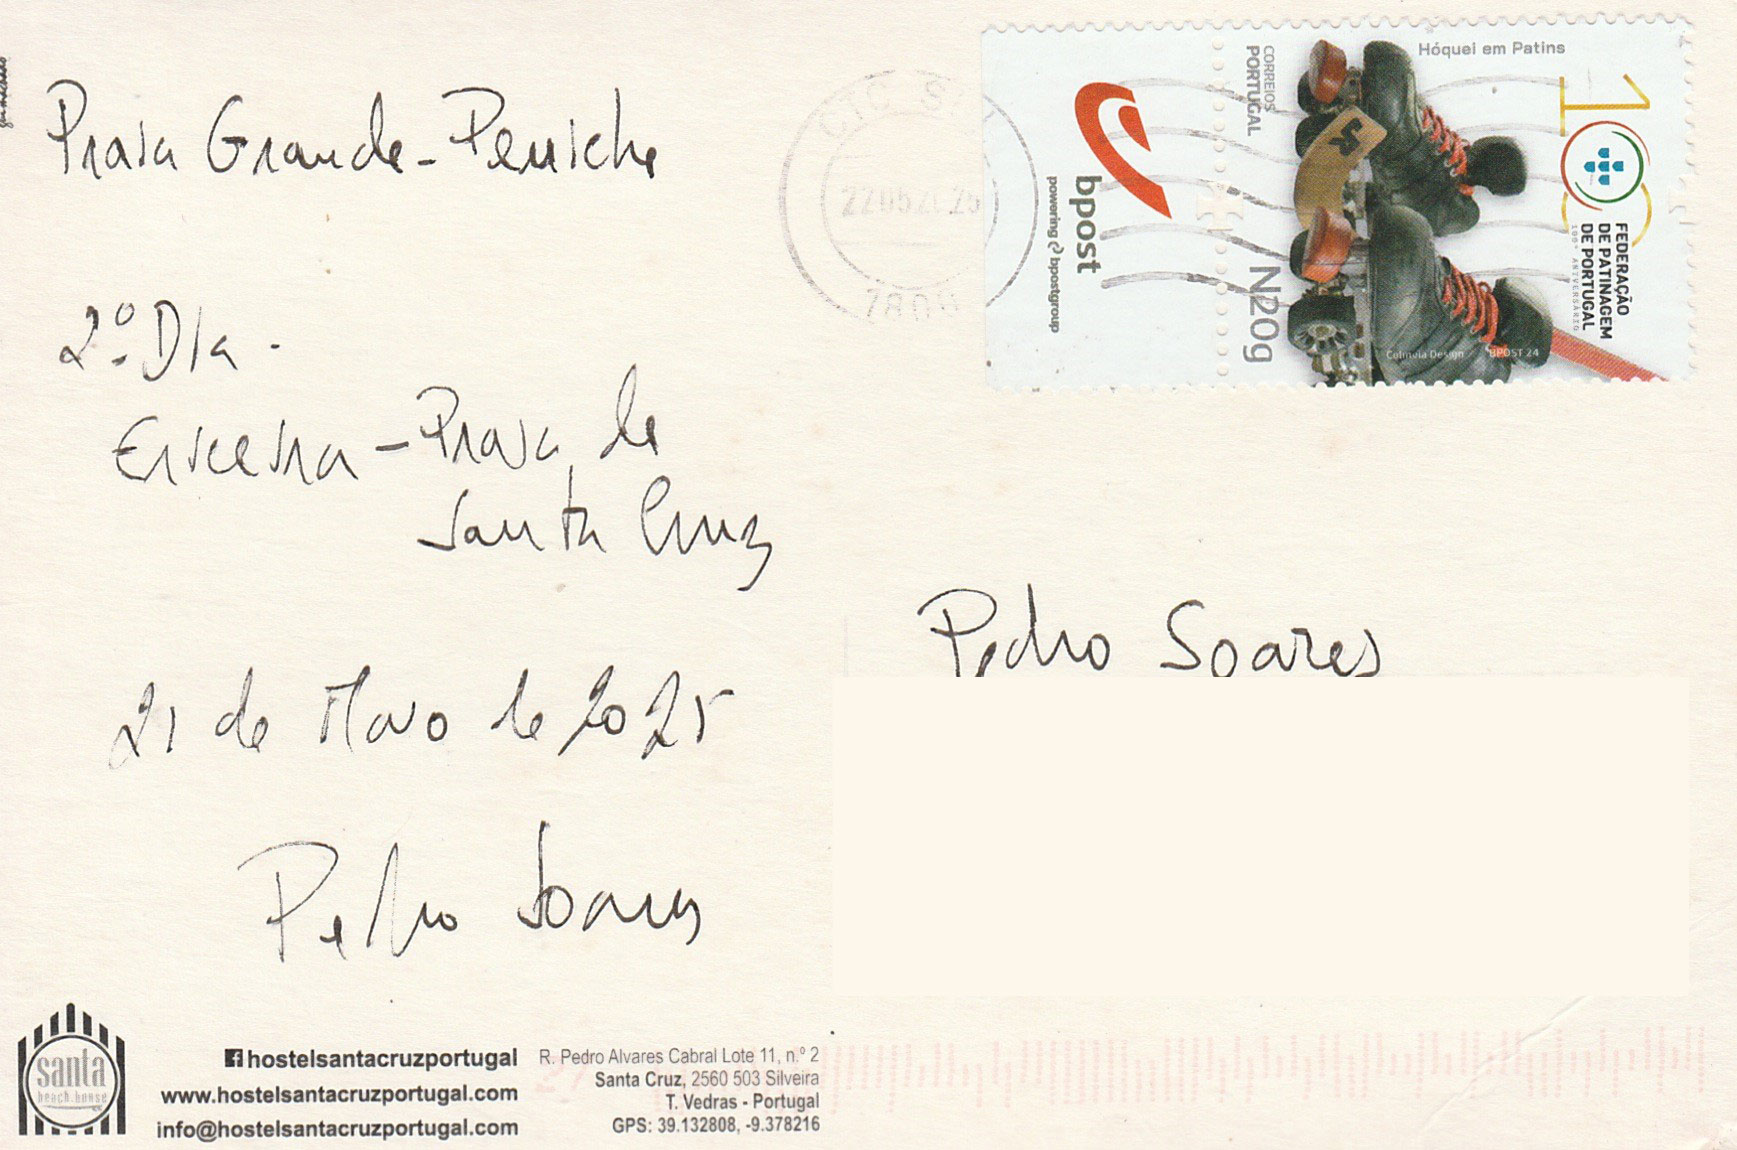 Praia Grande - Peniche
2º Dia.
Ericeira - Praia de
Santa Cruz
21 de Maio de 2025
Pedro Soares
CORREIOS
PORTUGAL
Hóquei em Patins
100
FEDERAÇÃO
DE PATINAGEM
DE PORTUGAL
100º ANIVERSÁRIO
N20g
Colinvia Design
BPOST 24
bpost
powering bpostgroup
7800
Pedro Soares
santa
beach.house
hostelsantacruzportugal
www.hostelsantacruzportugal.com
info@hostelsantacruzportugal.com
R. Pedro Alvares Cabral Lote 11, n.º 2
Santa Cruz, 2560 503 Silveira
T. Vedras - Portugal
GPS: 39.132808, -9.378216